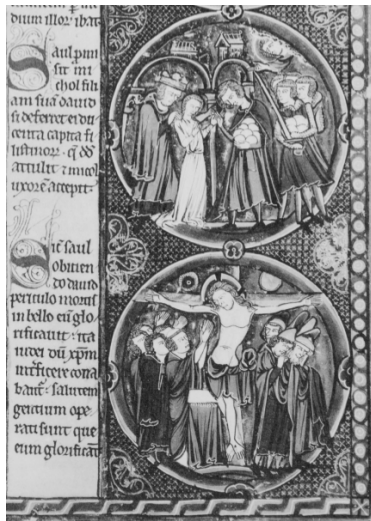 dium illor. ibat
Saul pmi
sit mi
chol fili
am suā dauid
si deferret ei du
centa capita fi
listinorꝝ. qd dd
attulit ⁊ micol
uxorē accepit
Sic saul
obitien
do dauid
periculo mortis
in bello eū glo
rificauit: ita
iudei dū xpm
interficere cona
bant: salutem
gentium ope
rati sunt que
eum glorificat